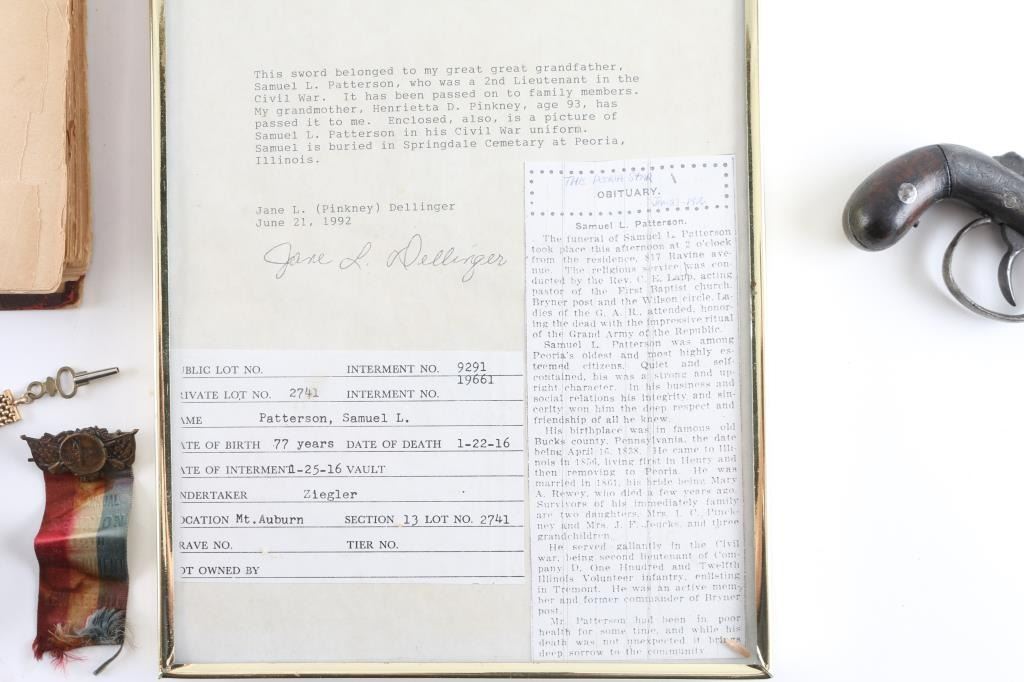 This sword belonged to my great great grandfather,
Samuel L. Patterson, who was a 2nd Lieutenant in the
Civil War. It has been passed on to family members.
My grandmother, Henrietta D. Pinkney, age 93, has
passed it to me. Enclosed, also, is a picture of
Samuel L. Patterson in his Civil War uniform.
Samuel is buried in Springdale Cemetary at Peoria,
Illinois.
Jane L. (Pinkney) Dellinger
June 21, 1992
Jane L. Dellinger
UBLIC LOT NO. INTERMENT NO. 9291
19661
RIVATE LOT NO. 2741 INTERMENT NO.
AME Patterson, Samuel L.
ATE OF BIRTH 77 years DATE OF DEATH 1-22-16
ATE OF INTERMENT 1-25-16 VAULT
NDERTAKER Ziegler
OCATION Mt.Auburn SECTION 13 LOT NO. 2741
RAVE NO. TIER NO.
OT OWNED BY
THE PEORIA STAR
OBITUARY.
Samuel L. Patterson.
The funeral of Samuel L. Patterson
took place this afternoon at 2 o'clock
from the residence, 817 Ravine ave-
nue. The religious service was con-
ducted by the Rev. C. E. Lapp, acting
pastor of the First Baptist church.
Bryner post and the Wilson circle, La-
dies of the G. A. R., attended, honor-
ing the dead with the impressive ritual
of the Grand Army of the Republic.
Samuel L. Patterson was among
Peoria's oldest and most highly es-
teemed citizens. Quiet and self-
contained, his was a strong and up-
right character. In his business and
social relations his integrity and sin-
cerity won him the deep respect and
friendship of all he knew.
His birthplace was in famous old
Bucks county, Pennsylvania, the date
being April 16, 1838. He came to Illi-
nois in 1856, living first in Henry and
then removing to Peoria. He was
married in 1861, his bride being Mary
A. Rewey, who died a few years ago.
Survivors of his immediately family
are two daughters, Mrs. I. C. Pinck-
ney and Mrs. J. F. Jencks, and three
grandchildren.
He served gallantly in the Civil
war, being second lieutenant of Com-
pany D, One Hnudred and Twelfth
Illinois Volunteer infantry, enlisting
in Tremont. He was an active mem-
ber and former commander of Bryner
post.
Mr. Patterson had been in poor
health for some time, and while his
death was not unexpected it brings
deep sorrow to the community.